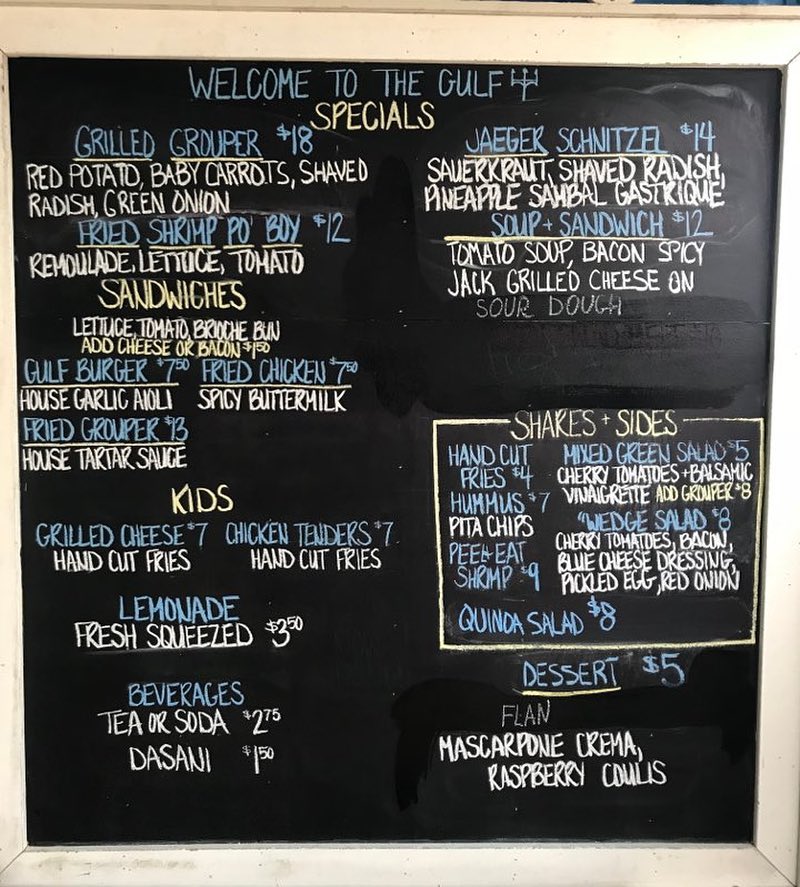 WELCOME TO THE GULF
SPECIALS
GRILLED GROUPER $18
RED POTATO, BABY CARROTS, SHAVED
RADISH, GREEN ONION
FRIED SHRIMP PO' BOY $12
REMOULADE, LETTUCE, TOMATO
JAEGER SCHNITZEL $14
SAUERKRAUT, SHAVED RADISH,
PINEAPPLE SAMBAL GASTRIQUE
SOUP + SANDWICH $12
TOMATO SOUP, BACON SPICY
JACK GRILLED CHEESE ON
SOUR DOUGH
SANDWICHES
LETTUCE, TOMATO, BRIOCHE BUN
ADD CHEESE OR BACON $1.50
GULF BURGER $7.50
HOUSE GARLIC AIOLI
FRIED CHICKEN $7.50
SPICY BUTTERMILK
FRIED GROUPER $13
HOUSE TARTAR SAUCE
KIDS
GRILLED CHEESE $7
HAND CUT FRIES
CHICKEN TENDERS $7
HAND CUT FRIES
LEMONADE
FRESH SQUEEZED $3.50
BEVERAGES
TEA OR SODA $2.75
DASANI $1.50
SHARES + SIDES
HAND CUT
FRIES $4
HUMMUS $7
PITA CHIPS
PEEL + EAT
SHRIMP $9
MIXED GREEN SALAD $5
CHERRY TOMATOES + BALSAMIC
VINAIGRETTE ADD GROUPER $8
"WEDGE SALAD $8
CHERRY TOMATOES, BACON,
BLUE CHEESE DRESSING,
PICKLED EGG, RED ONION
QUINOA SALAD $8
DESSERT $5
FLAN
MASCARPONE CREMA,
RASPBERRY COULIS